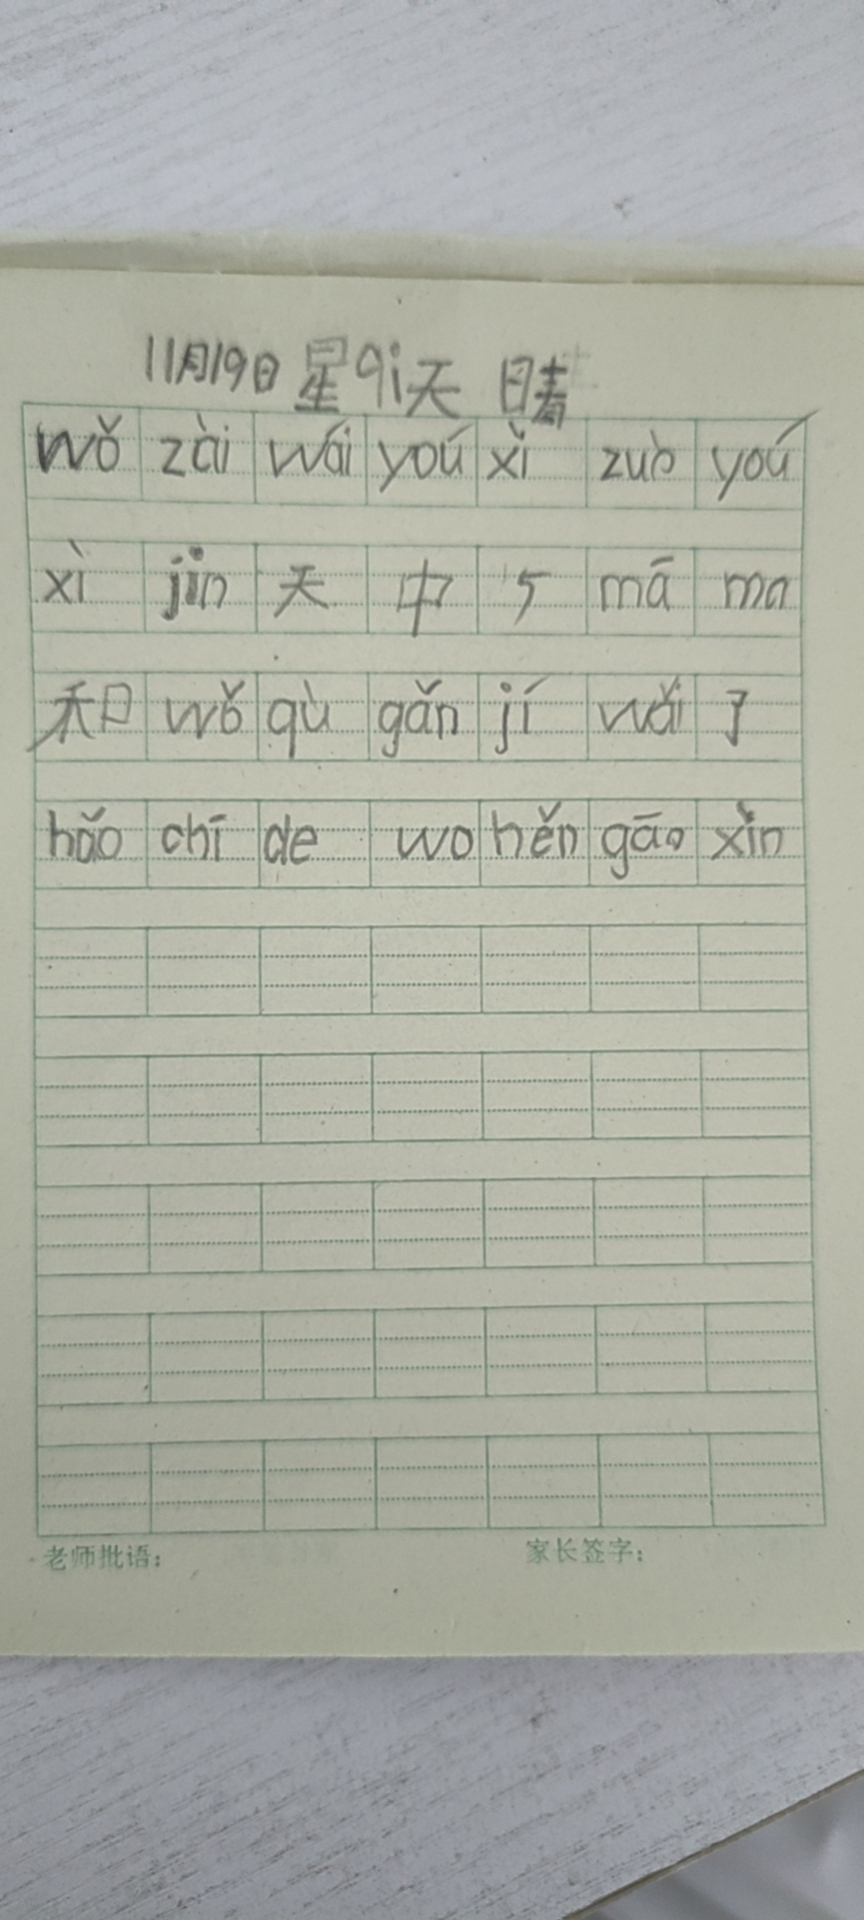 11月19日 星qi天 晴
wǒ zài wái yoú xì zuò yoú
xì jīn 天 中 午 mā ma
和 wǒ qù gǎn jí wǎi 了
hǎo chī de wo hěn gāo xìn
老师批语： 家长签字：